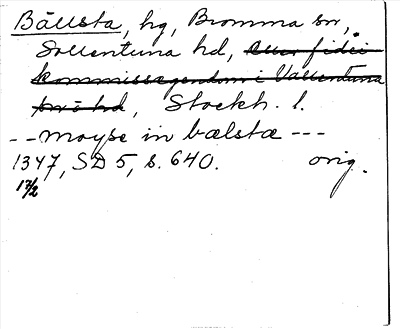 Bällsta, hg, Bromma sn,
Sollentuna hd, eller fidei-
kommissegendom i Vallentuna
sn o hd, Stockh. l.
-- moyse in bælstæ ---
1347, SD 5, s. 640. orig.
17/2